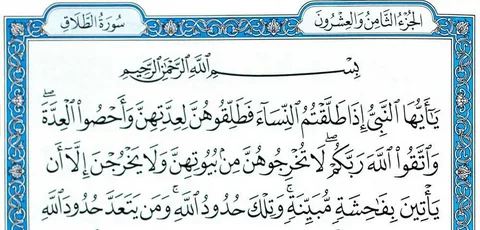 الجُزءُ الثَّامِنُ وَالعِشْرُونَ
سُورَةُ الطَّلَاقِ
بِسْمِ اللَّهِ الرَّحْمَٰنِ الرَّحِيمِ
يَٰٓأَيُّهَا ٱلنَّبِيُّ إِذَا طَلَّقْتُمُ ٱلنِّسَآءَ فَطَلِّقُوهُنَّ لِعِدَّتِهِنَّ وَأَحْصُوا۟ ٱلْعِدَّةَۖ
وَٱتَّقُوا۟ ٱللَّهَ رَبَّكُمْۖ لَا تُخْرِجُوهُنَّ مِنۢ بُيُوتِهِنَّ وَلَا يَخْرُجْنَ إِلَّآ أَن
يَأْتِينَ بِفَٰحِشَةٍ مُّبَيِّنَةٍۚ وَتِلْكَ حُدُودُ ٱللَّهِۚ وَمَن يَتَعَدَّ حُدُودَ ٱللَّهِ